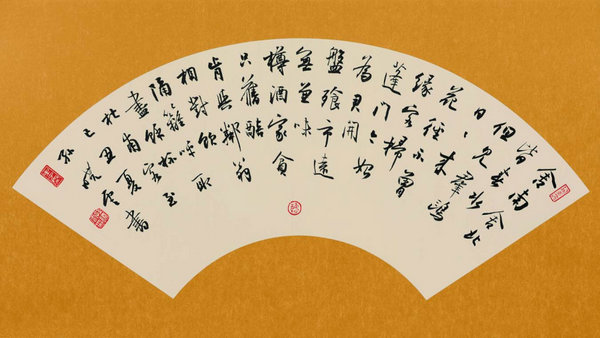 舍南舍北
皆春水
但見群鷗
日日來
花徑不曾
緣客掃
蓬門今始
為君開
盤飧市遠
無兼味
樽酒家貧
只舊醅
肯與鄰翁
相對飲
隔籬呼取
盡餘杯
杜甫客至
己丑夏書
曉雲